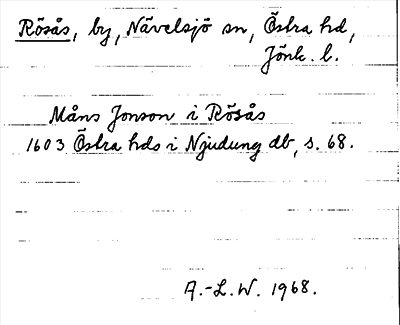 Rösås, by, Nävelsjö sn, Östra hd,
Jönk. l.
Måns Jonson i Rösås
1603 Östra hds i Njudung db, s. 68.
A.-L.W. 1968.